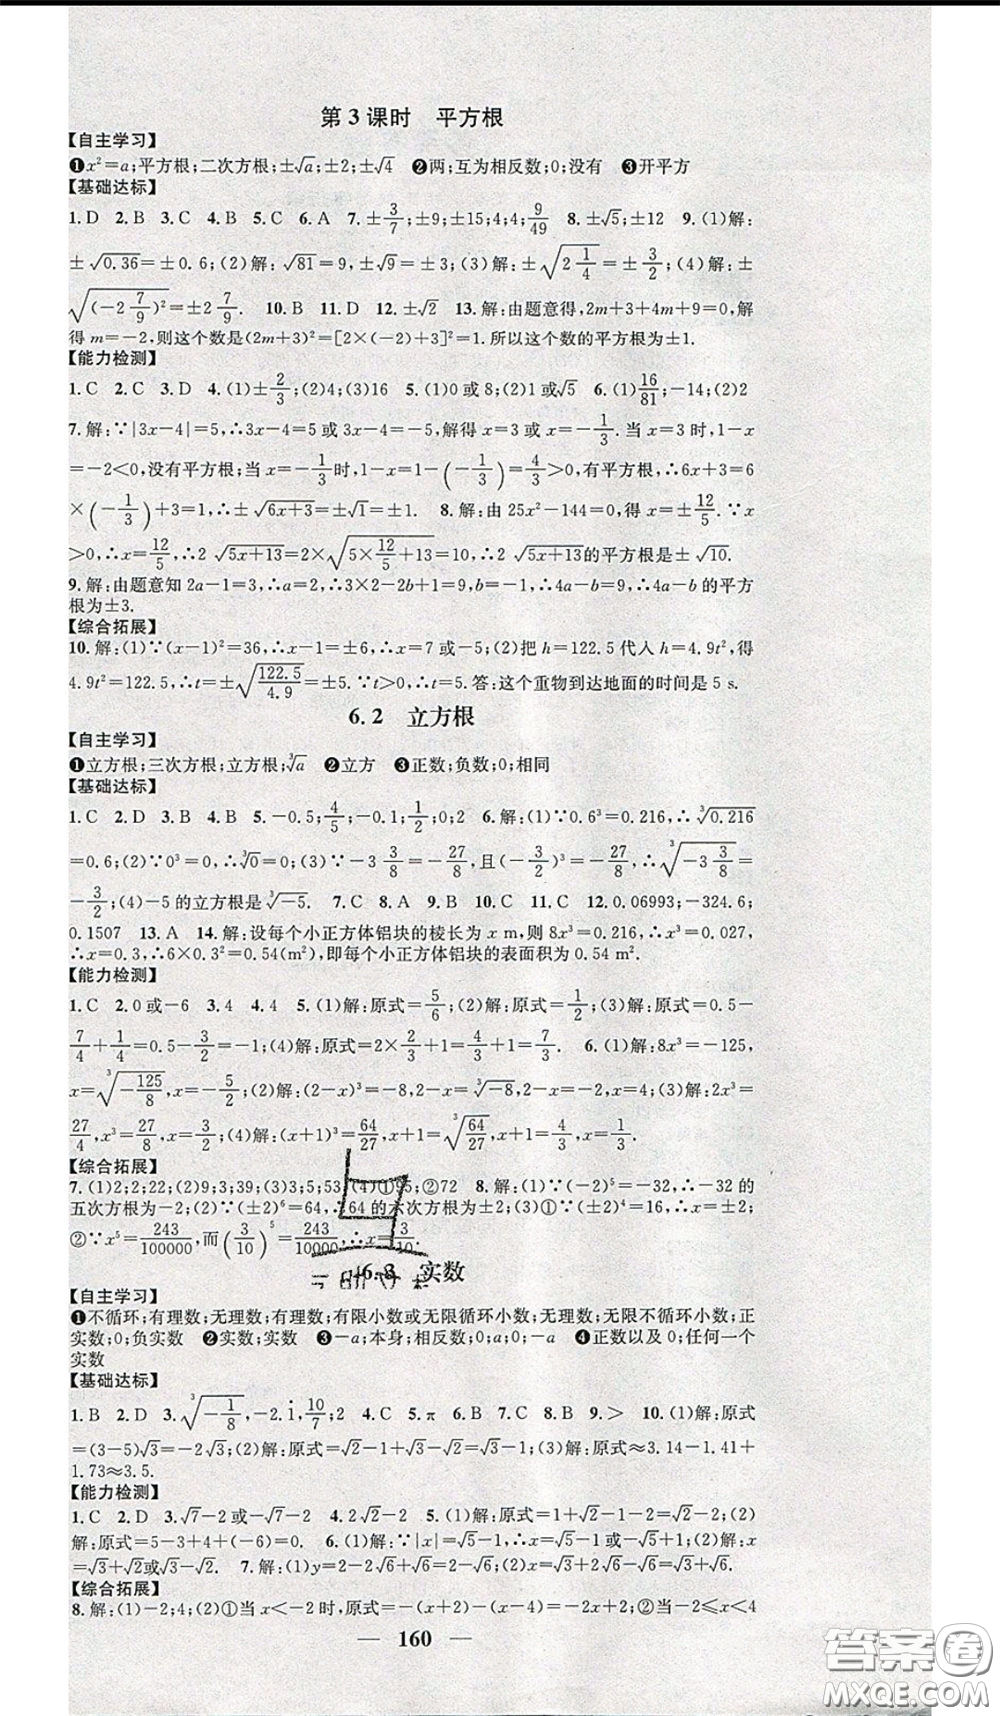 第3课时　平方根
【自主学习】
❶x²=a;平方根;二次方根;±√a;±2;±√4　❷两;互为相反数;0;没有　❸开平方
【基础达标】
1.D　2.B　3.C　4.B　5.C　6.A　7.±3/7;±9;±15;4;4;9/49　8.±√5;±12　9.(1)解:
±√0.36=±0.6;(2)解:√81=9,±√9=±3;(3)解:±√(2 1/4)=±3/2;(4)解:±
√((-2 7/9)²)=±2 7/9.　10.B　11.D　12.±√2　13.解:由题意得,2m+3+4m+9=0,解
得m=-2,则这个数是(2m+3)²=[2×(-2)+3]²=1.所以这个数的平方根为±1.
【能力检测】
1.C　2.C　3.D　4.(1)±2/3;(2)4;(3)16　5.(1)0或8;(2)1或√5　6.(1)16/81;-14;(2)2
7.解:∵|3x-4|=5,∴3x-4=5或3x-4=-5,解得x=3或x=-1/3.当x=3时,1-x
=-2<0,没有平方根;当x=-1/3时,1-x=1-(-1/3)=4/3>0,有平方根,∴6x+3=6
×(-1/3)+3=1,∴±√(6x+3)=±√1=±1.　8.解:由25x²-144=0,得x=±12/5.∵x
>0,∴x=12/5,∴2√(5x+13)=2×√(5×12/5+13)=10,∴2√(5x+13)的平方根是±√10.
9.解:由题意知2a-1=3,∴a=2,∴3×2-2b+1=9,b=-1,∴4a-b=9,∴4a-b的平方
根为±3.
【综合拓展】
10.解:(1)∵(x-1)²=36,∴x-1=±6,∴x=7或-5;(2)把h=122.5代入h=4.9t²,得
4.9t²=122.5,∴t=±√(122.5/4.9)=±5.∵t>0,∴t=5.答:这个重物到达地面的时间是5 s.
6.2　立方根
【自主学习】
❶立方根;三次方根;立方根;∛a　❷立方　❸正数;负数;0;相同
【基础达标】
1.C　2.D　3.B　4.B　5.-0.5;4/5;-0.1;1/2;0;2　6.解:(1)∵0.6³=0.216,∴∛0.216
=0.6;(2)∵0³=0,∴∛0=0;(3)∵-3 3/8=-27/8,且(-3/2)³=-27/8,∴∛(-3 3/8)=
-3/2;(4)-5的立方根是∛-5.　7.C　8.A　9.C　10.C　11.C　12.0.06993;-324.6;
0.1507　13.A　14.解:设每个小正方体铝块的棱长为x m,则8x³=0.216,∴x³=0.027,
∴x=0.3,∴6×0.3²=0.54(m²),即每个小正方体铝块的表面积为0.54 m².
【能力检测】
1.C　2.0或-6　3.4　4.4　5.(1)解:原式=5/6;(2)解:原式=1/2;(3)解:原式=0.5-
7/4+1/4=0.5-3/2=-1;(4)解:原式=2×2/3+1=4/3+1=7/3.　6.(1)解:8x³=-125,
x=∛(-125/8),x=-5/2;(2)解:(2-x)³=-8,2-x=∛-8,2-x=-2,x=4;(3)解:2x³=
27/4,x³=27/8,x=3/2;(4)解:(x+1)³=64/27,x+1=∛(64/27),x+1=4/3,x=1/3.
【综合拓展】
7.(1)2;2;22;(2)9;3;39;(3)3;5;53;(4)①95;②72　8.解:(1)∵(-2)⁵=-32,∴-32的
五次方根为-2;(2)∵(±2)⁶=64,∴64的六次方根为±2;(3)①∵(±2)⁴=16,∴x=±2;
②∵x⁵=243/100000,而(3/10)⁵=243/100000,∴x=3/10.
6.3　实数
【自主学习】
❶不循环;有理数;无理数;有理数;有限小数或无限循环小数;无理数;无限不循环小数;正
实数;0;负实数　❷实数;实数　❸-a;本身;相反数;0;a;0;-a　❹正数以及0;任何一个
实数
【基础达标】
1.B　2.D　3.∛(-1/8),-2.1̇,10/7;2　4.C　5.π　6.B　7.B　8.B　9.>　10.(1)解:原式
=(3-5)√3=-2√3;(2)解:原式=√2-1+√3-√2=√3-1;(3)解:原式≈3.14-1.41+
1.73≈3.5.
【能力检测】
1.C　2.D　3.√7-2或-√7-2　4.2√2-2　5.(1)解:原式=1+√2-1-2=√2-2;(2)
解:原式=5-3+4+(-6)=0.　6.(1)解:∵|x|=√5-1,∴x=√5-1或-√5+1;(2)解:
x=√3+√2或√3-√2.　7.解:(1)y=2-2√6+√6=2-√6;(2)解:原式=√3+√6.
【综合拓展】
8.解:(1)-2;4;(2)①当x<-2时,原式=-(x+2)-(x-4)=-2x+2;②当-2≤x<4
— 160 —
答案圈
MXQE.COM